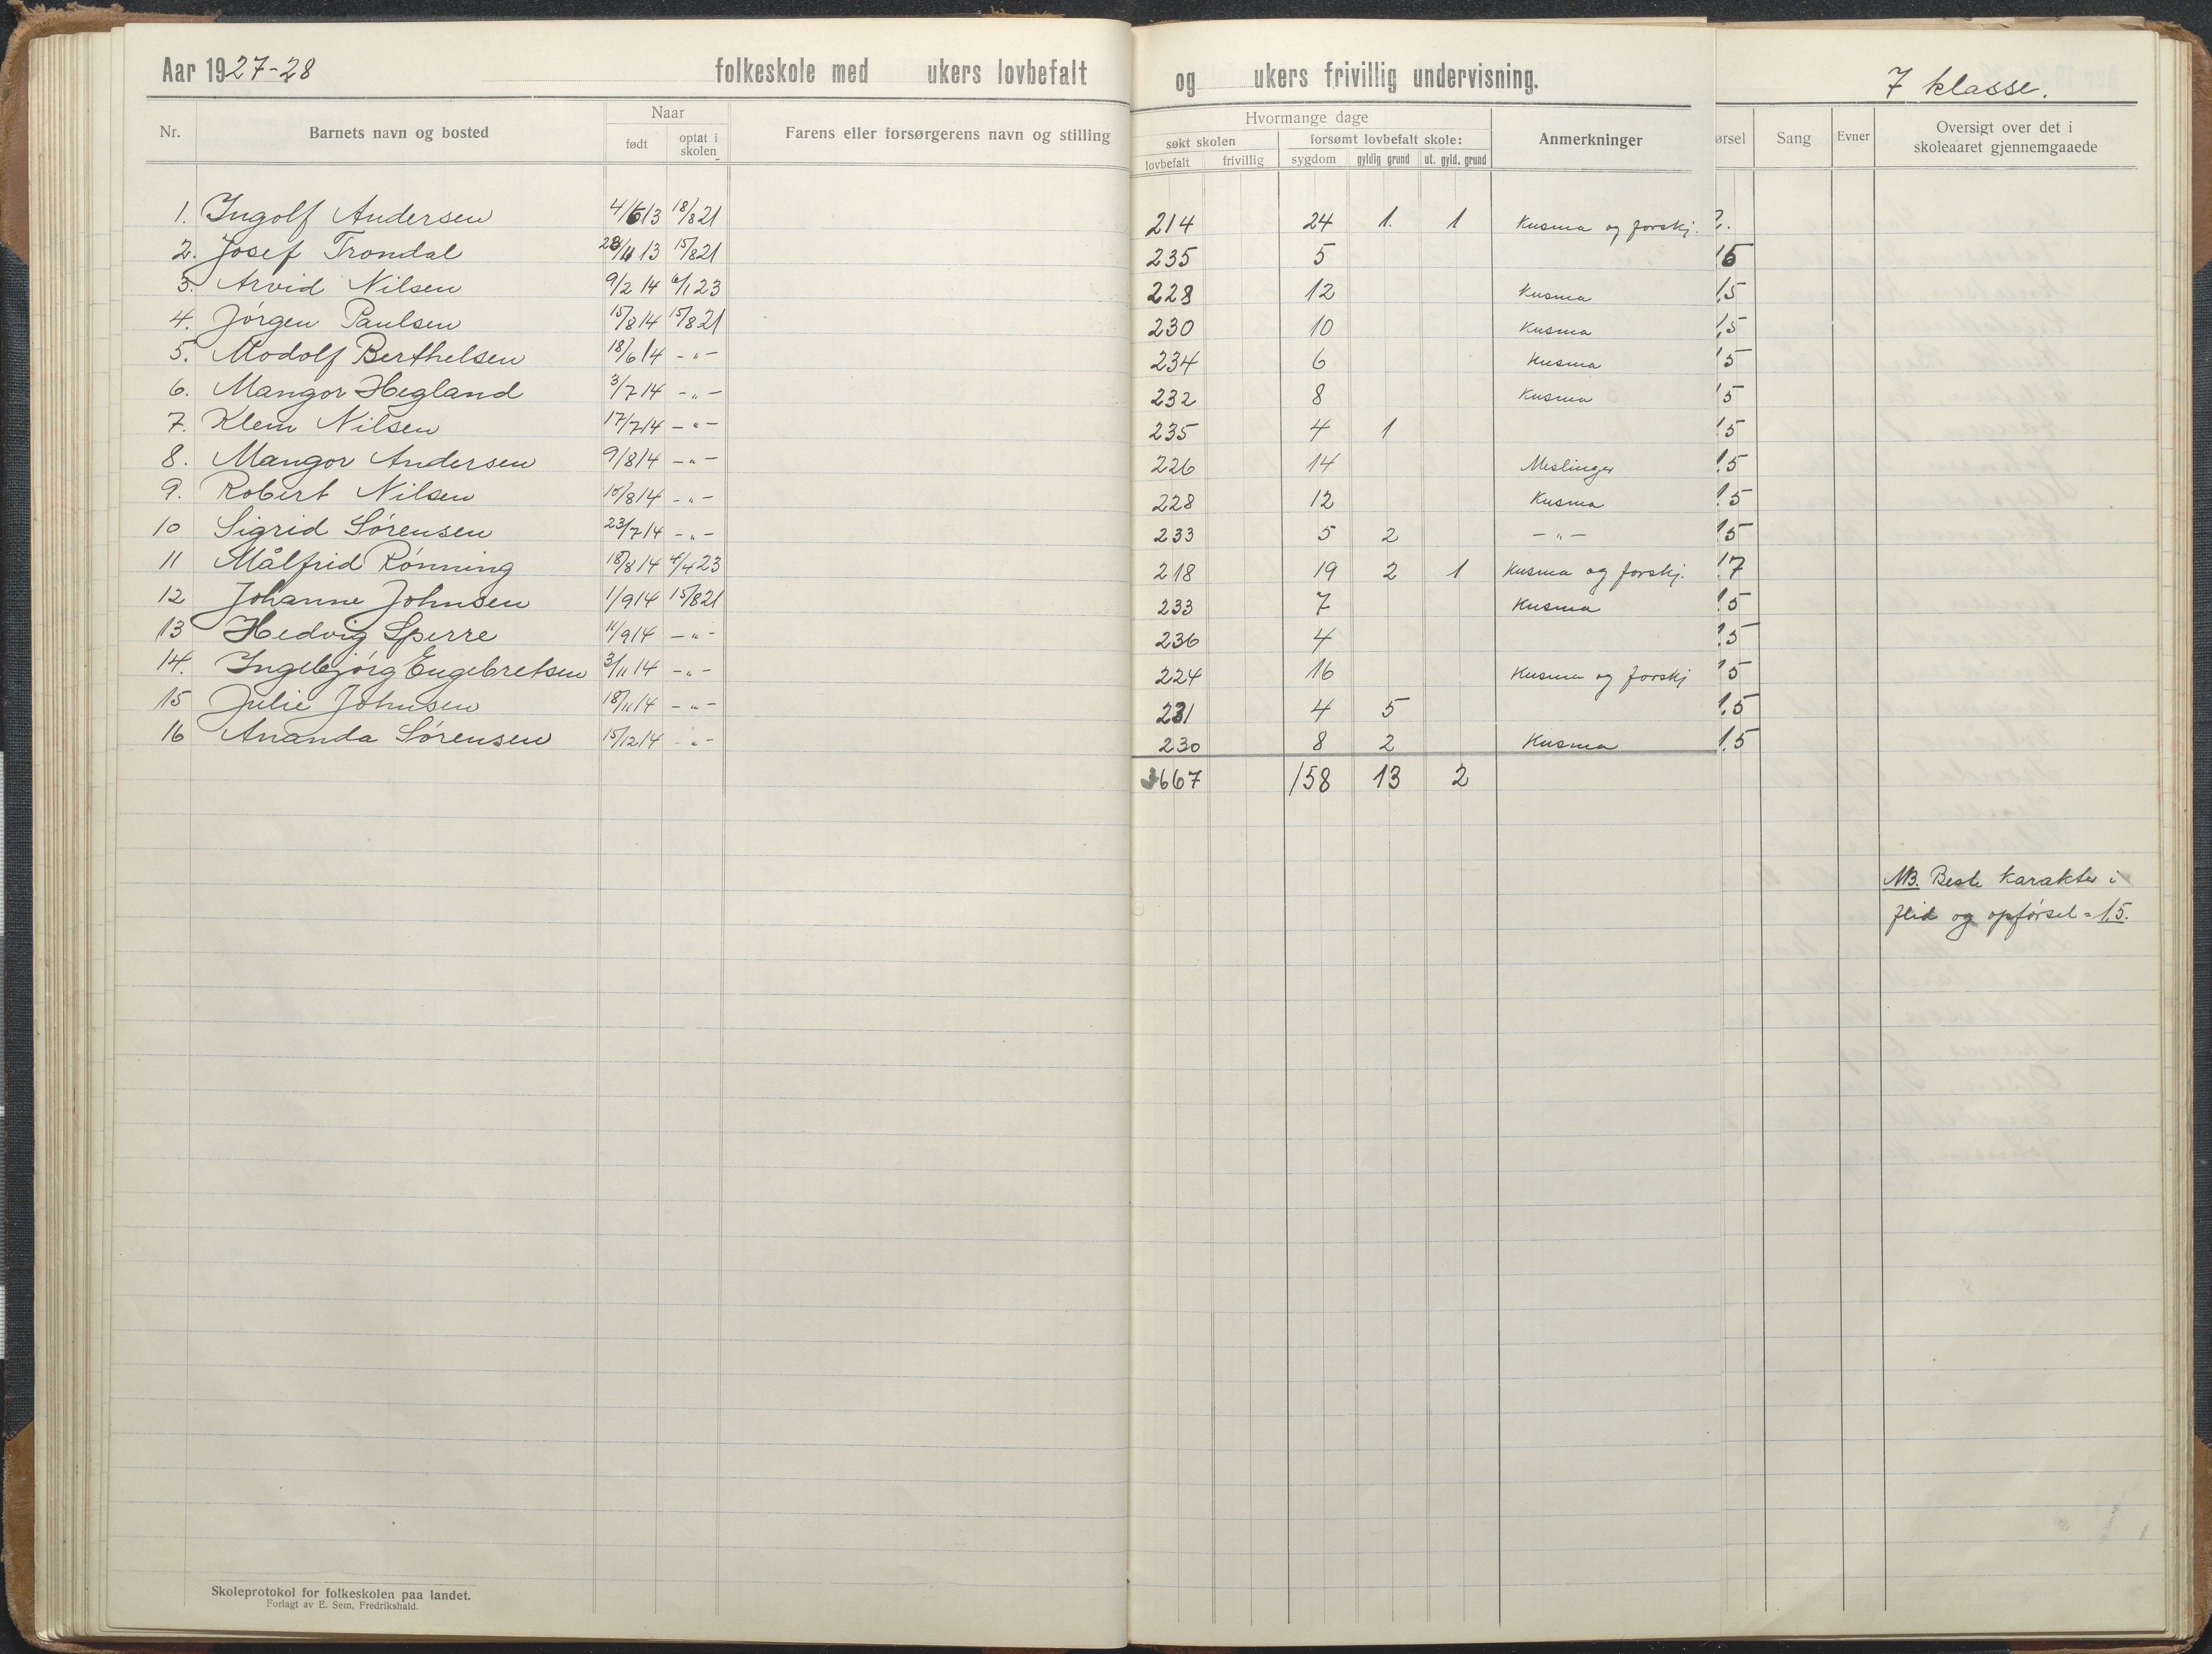 Aar 1927-28 folkeskole med ukers lovbefalt og ukers frivillig undervisning. 7 klasse.
Nr. Barnets navn og bosted Naar født optat i skolen Farens eller forsørgerens navn og stilling Hvormange dage søkt skolen lovbefalt frivillig forsømt lovbefalt skole: sygdom gyldig grund ut. gyld. grund Anmerkninger ørsel Sang Evner Oversigt over det i skoleaaret gjennemgaaede
1. Ingolf Andersen 4/6 13 18/8 21 214 24 1. 1 Kusma og forskj. 2.
2. Josef Trondal 13 15/8 21 235 5 15
3. Arvid Nilsen 9/2 14 23 228 12 Kusma 1,5
4. Jørgen Paulsen 15/8 14 15/8 21 230 10 Kusma 1,5
5. Modolf Berthelsen 18/6 14 - " - 234 6 Kusma 15
6. Mangor Hegland 3/7 14 - " - 232 8 Kusma 15
7. Klem Nilsen 17/7 14 - " - 235 4 1 15
8. Mangor Andersen 9/8 14 - " - 226 14 Meslinger 1.5
9. Robert Nilsen 10/8 14 - " - 228 12 Kusma 1.5
10 Sigrid Sørensen 23/7 14 - " - 233 5 2 - " - 15
11 Målfrid Rønning 18/8 14 4/4 23 218 19 2 1 Kusma og forskj. 1.7
12 Johanne Johnsen 1/9 14 15/8 21 233 7 Kusma 1.5
13 Hedvig Sperre 11/9 14 - " - 236 4 1.5
14. Ingebjørg Engebretsen 3/11 14 - " - 224 16 Kusma og forskj 15
15 Julie Johnsen 18/11 14 - " - 231 4 5 1.5
16 Ananda Sørensen 15/12 14 - " - 230 8 2 Kusma 1.5
3667 158 13 2
NB. Beste karakter i
flid og opførsel = 1.5.
Skoleprotokol for folkeskolen paa landet.
Forlagt av E. Sem, Fredrikshald.